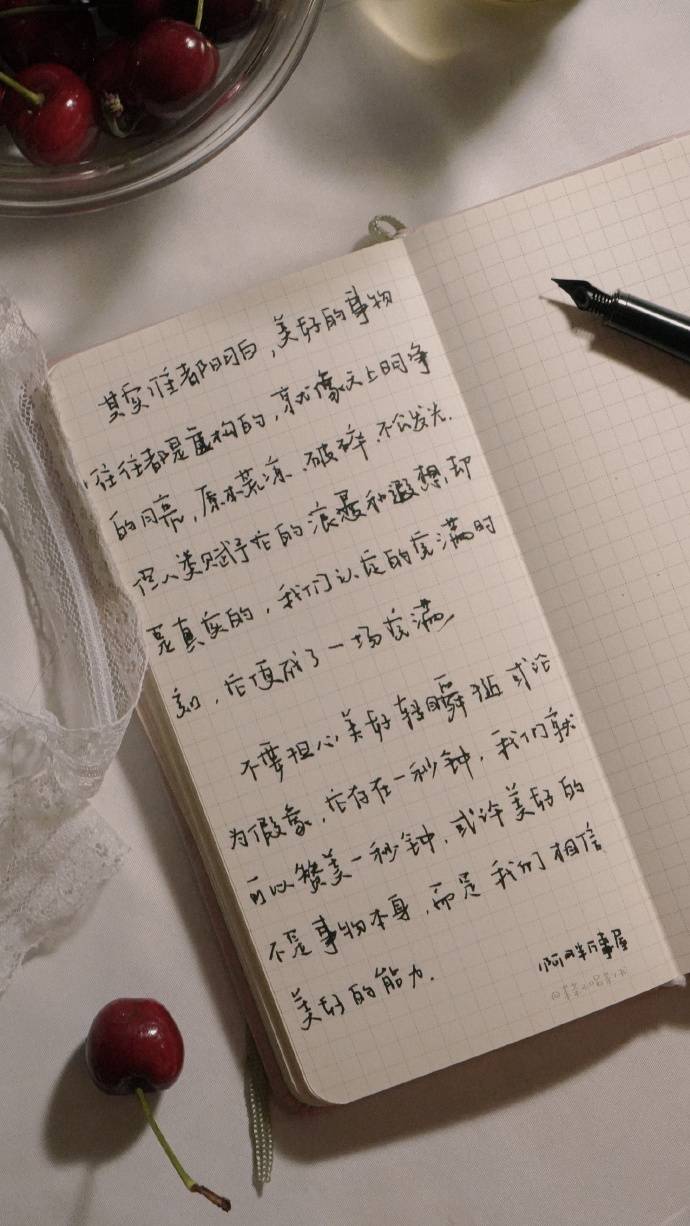 其实谁都明白，美好的事物
往往都是虚构的，就像天上明净
的月亮，原本荒凉、破碎、不会发光.
但人类赋予它的浪漫和遐想，却
是真实的，我们认定的底满时
刻，它便成了一场底满
不要担心美好转瞬 或沦
为假象，它存在一秒钟，我们就
可以赞美一秒钟，或许美好的
不是事物本身，而是我们相信
美好的能力.